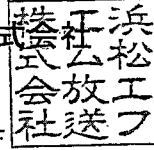 式会社
浜松エフ
エム放送
株式会社